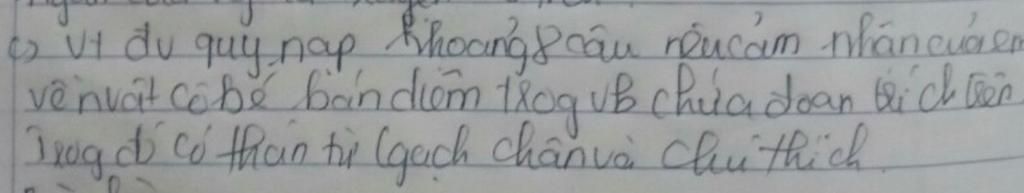 c) Vt đv quy nạp khoảng 8 câu nêu cảm nhận của em
về nvật cô bé bán diêm trog VB chứa đoạn trích trên
Trog đó có thán từ (gạch chân và chú thích